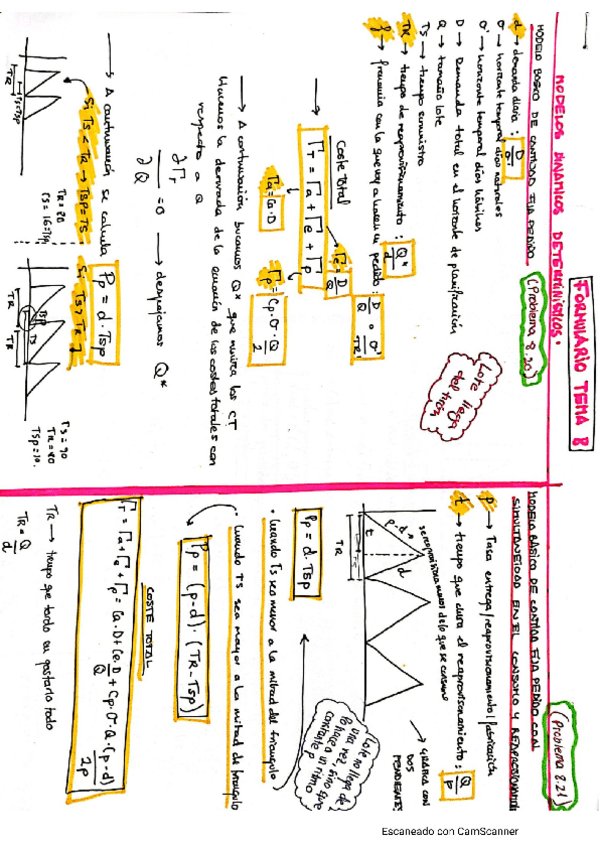 FORMULARIO TEMA 8
MODELOS DINAMICOS DETERMINISTICOS.
MODELO BÁSICO DE CANTIDAD FIJA PEDIDO. (Problema 8.20)
d → demanda diaria: D/σ'
σ → horizonte temporal días naturales
σ' → horizonte temporal días hábiles
D → Demanda total en el horizonte de planificación
Q → tamaño lote
Ts → tiempo suministro
TR → tiempo de reaprovisionamiento: Q*/d
f → frecuencia con la que voy a hacer un pedido: D/Q o σ'/TR
Lote llega del tirón
Coste Total
→ ΓT = Γa + Γe + Γp
Γe = D/Q
Γa = Ca·D
Γp = Cp·σ·Q/2
→ A continuación buscamos Q* que minimiza los CT
Hacemos la derivada de la ecuación de los costes totales con
respecto a Q
∂ΓT/∂Q = 0 → despejamos Q*
→ A continuación se calcula Pp = d·Tsp
Si Ts < TR → TSP = TS
Si Ts > TR
TR
TS=TSP
TR = 20
TS = 16
TR
TR
TS
Ts = 90
TR = 40
Tsp = 10.
MODELO BÁSICO DE CANTIDAD FIJA PEDIDO CON
SIMULTANEIDAD EN EL CONSUMO Y REAPROVISIONAMIENTO (Problema 8.21)
p → Tasa entrega/reaprovisionamiento/fabricación
t → tiempo que dura el reaprovisionamiento: Q/p
se reaprovisiona menos de lo que se consume
→ GRÁFICA CON DOS PENDIENTES
p-d
d
t
TR
Lote no llega de una vez sino que lo hace a un ritmo constante p
• Cuando Ts sea menor a la mitad del triángulo
Pp = d·Tsp
• Cuando Ts sea mayor a la mitad de triángulo
Pp = (p-d)·(TR-Tsp)
COSTE TOTAL
ΓT = Γa + Γe + Γp = Ca·D + Ce·D/Q + Cp·σ·Q·(p-d)/2p
TR → tiempo que tardo en gastarlo todo
TR = Q/d
Escaneado con CamScanner